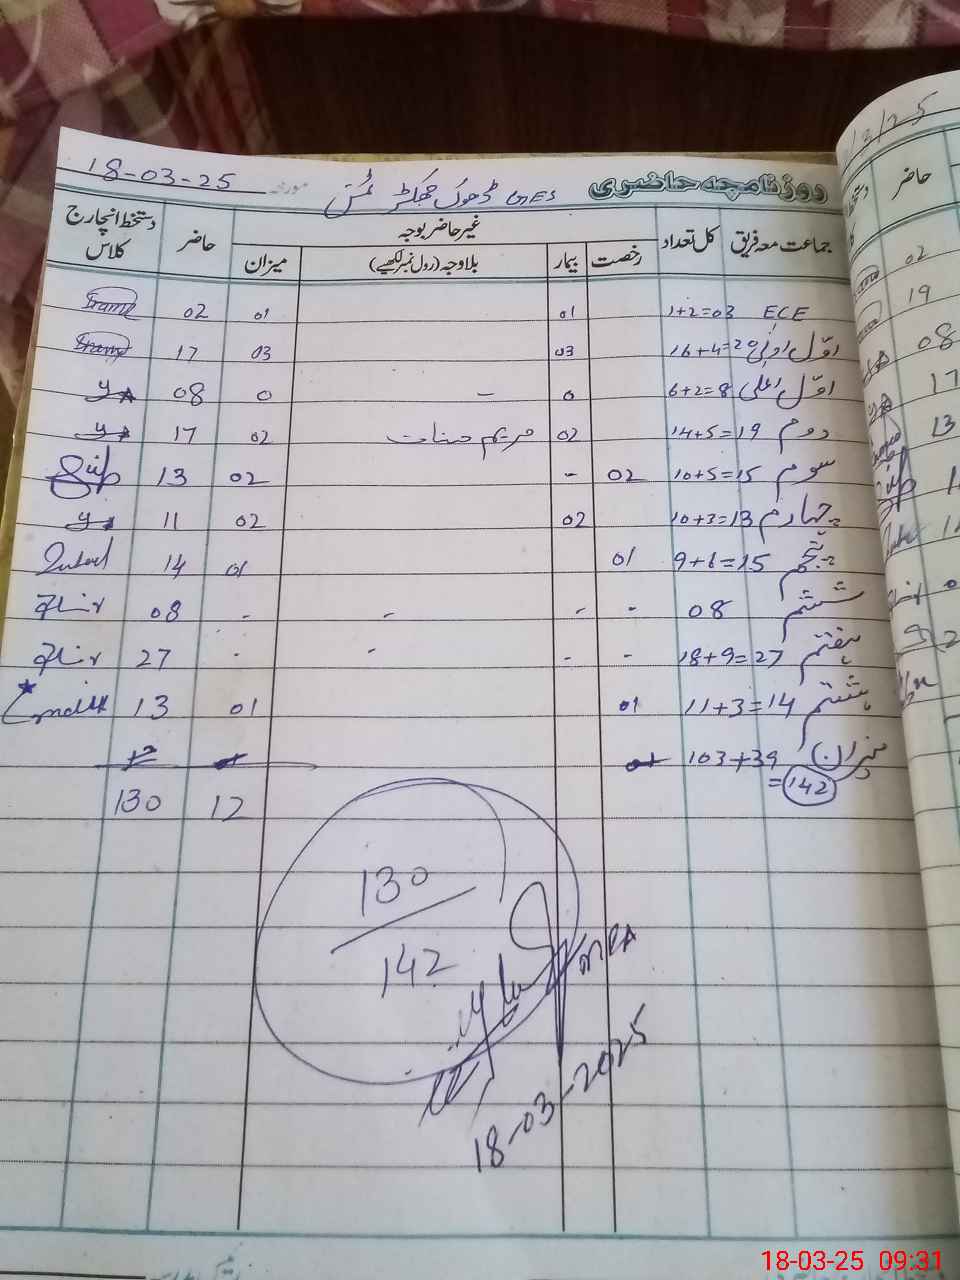 روزنامچہ حاضری GES ڈھوک مورخہ 18-03-25
جماعت معہ فریق کل تعداد غیر حاضر بوجہ حاضر دستخط انچارج کلاس
رخصت بیمار بلاوجہ (رول نمبر لکھیے) میزان
ECE 1+2=03 01 01 02
اوّل ادنیٰ 16+4=20 03 03 17
اوّل اعلیٰ 6+2=8 0 - 0 08
دوم 14+5=19 02 مریم 02 17
سوم 10+5=15 02 - 02 13
چہارم 10+3=13 02 02 11
پنجم 9+6=15 01 01 14
ششم 08 - - - - 08
ہفتم 18+9=27 - - - - 27
ہشتم 11+3=14 01 01 13
میزان 103+39
=142
12 130
130
142
MEA
18-03-2025
حاضر
02
19
08
17
13
18-03-25 09:31